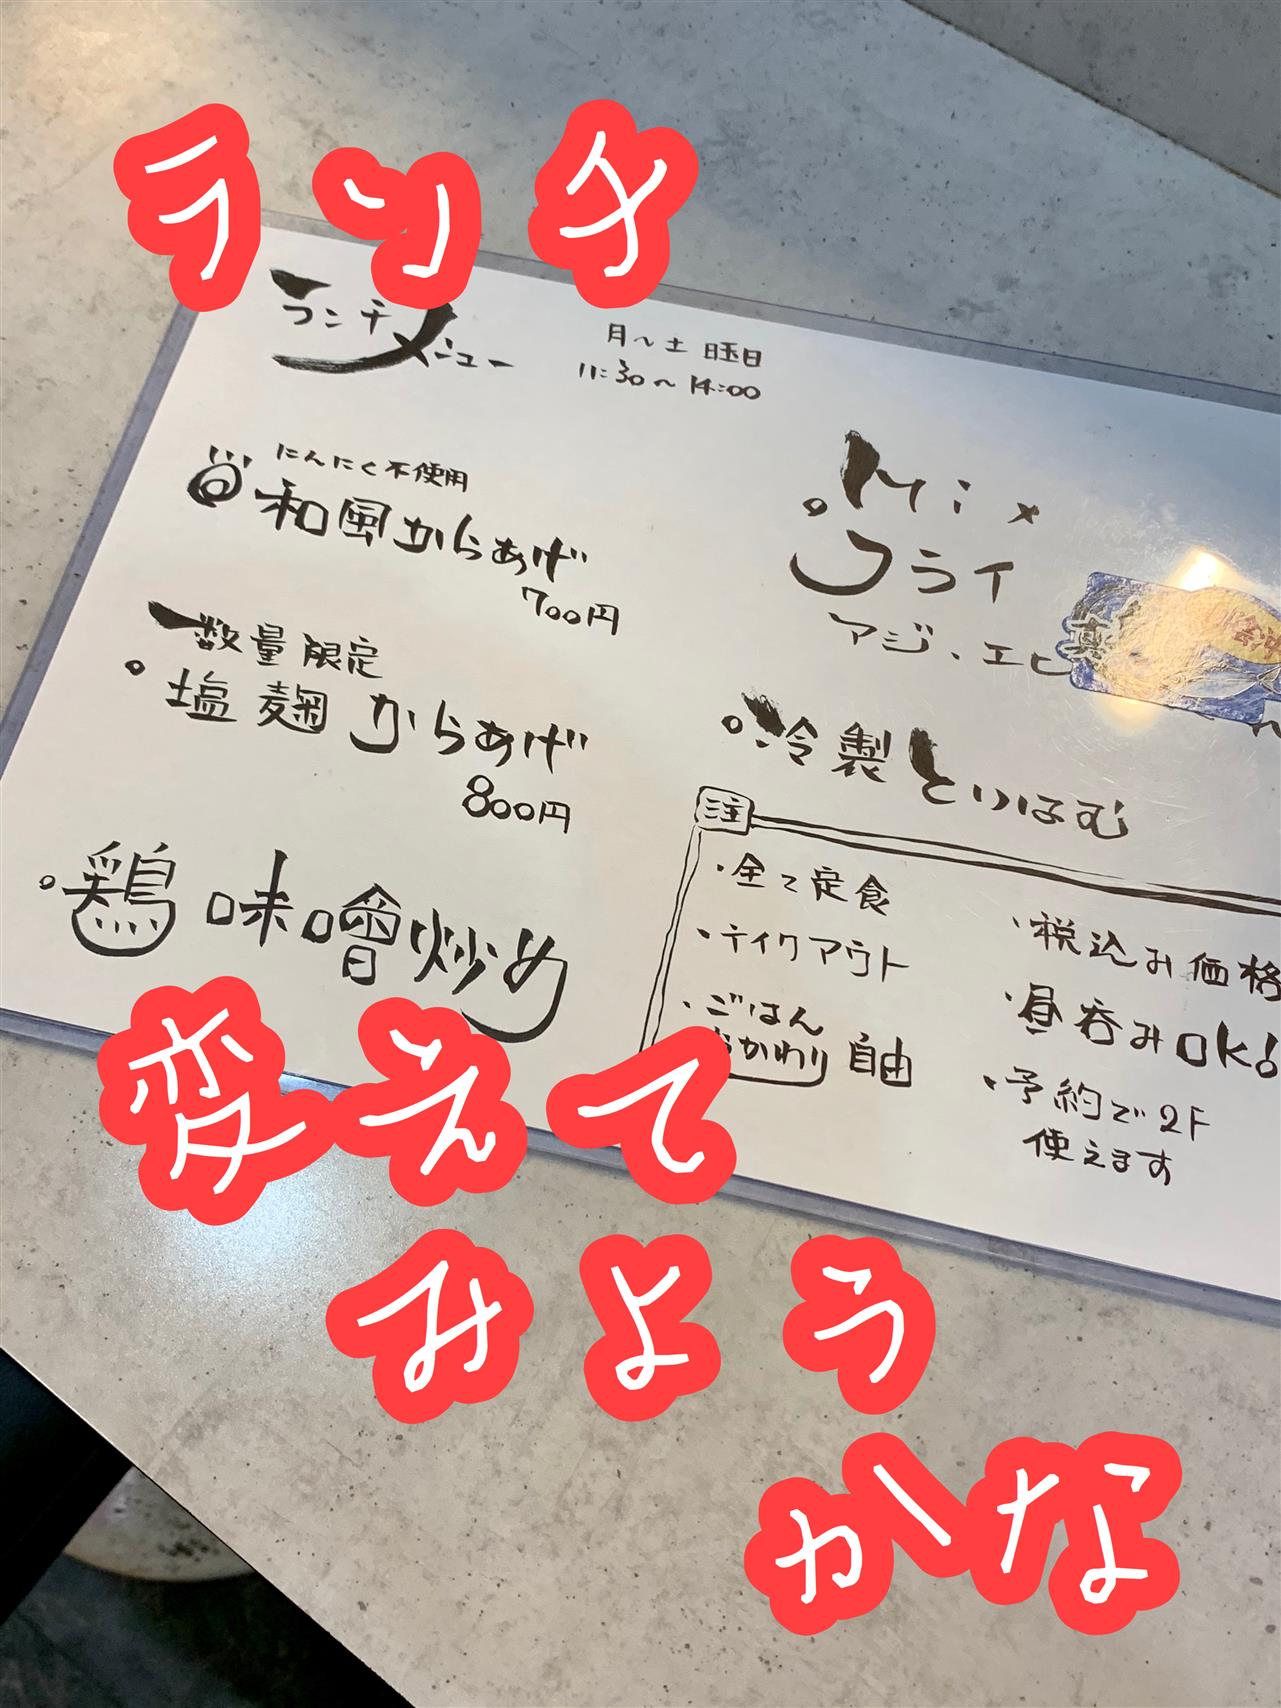 ランチ
ランチメニュー
月〜土曜日
11:30〜14:00
にんにく不使用
和風からあげ
700円
数量限定
塩麹からあげ
800円
鶏味噌炒め
Mix
フライ
アジ、エビ
冷製とりはむ
注
・全て定食
・テイクアウト
・ごはん
おかわり自由
・税込み価格
・昼呑みOK!
・予約で2F
使えます
変えて
みよう
かな